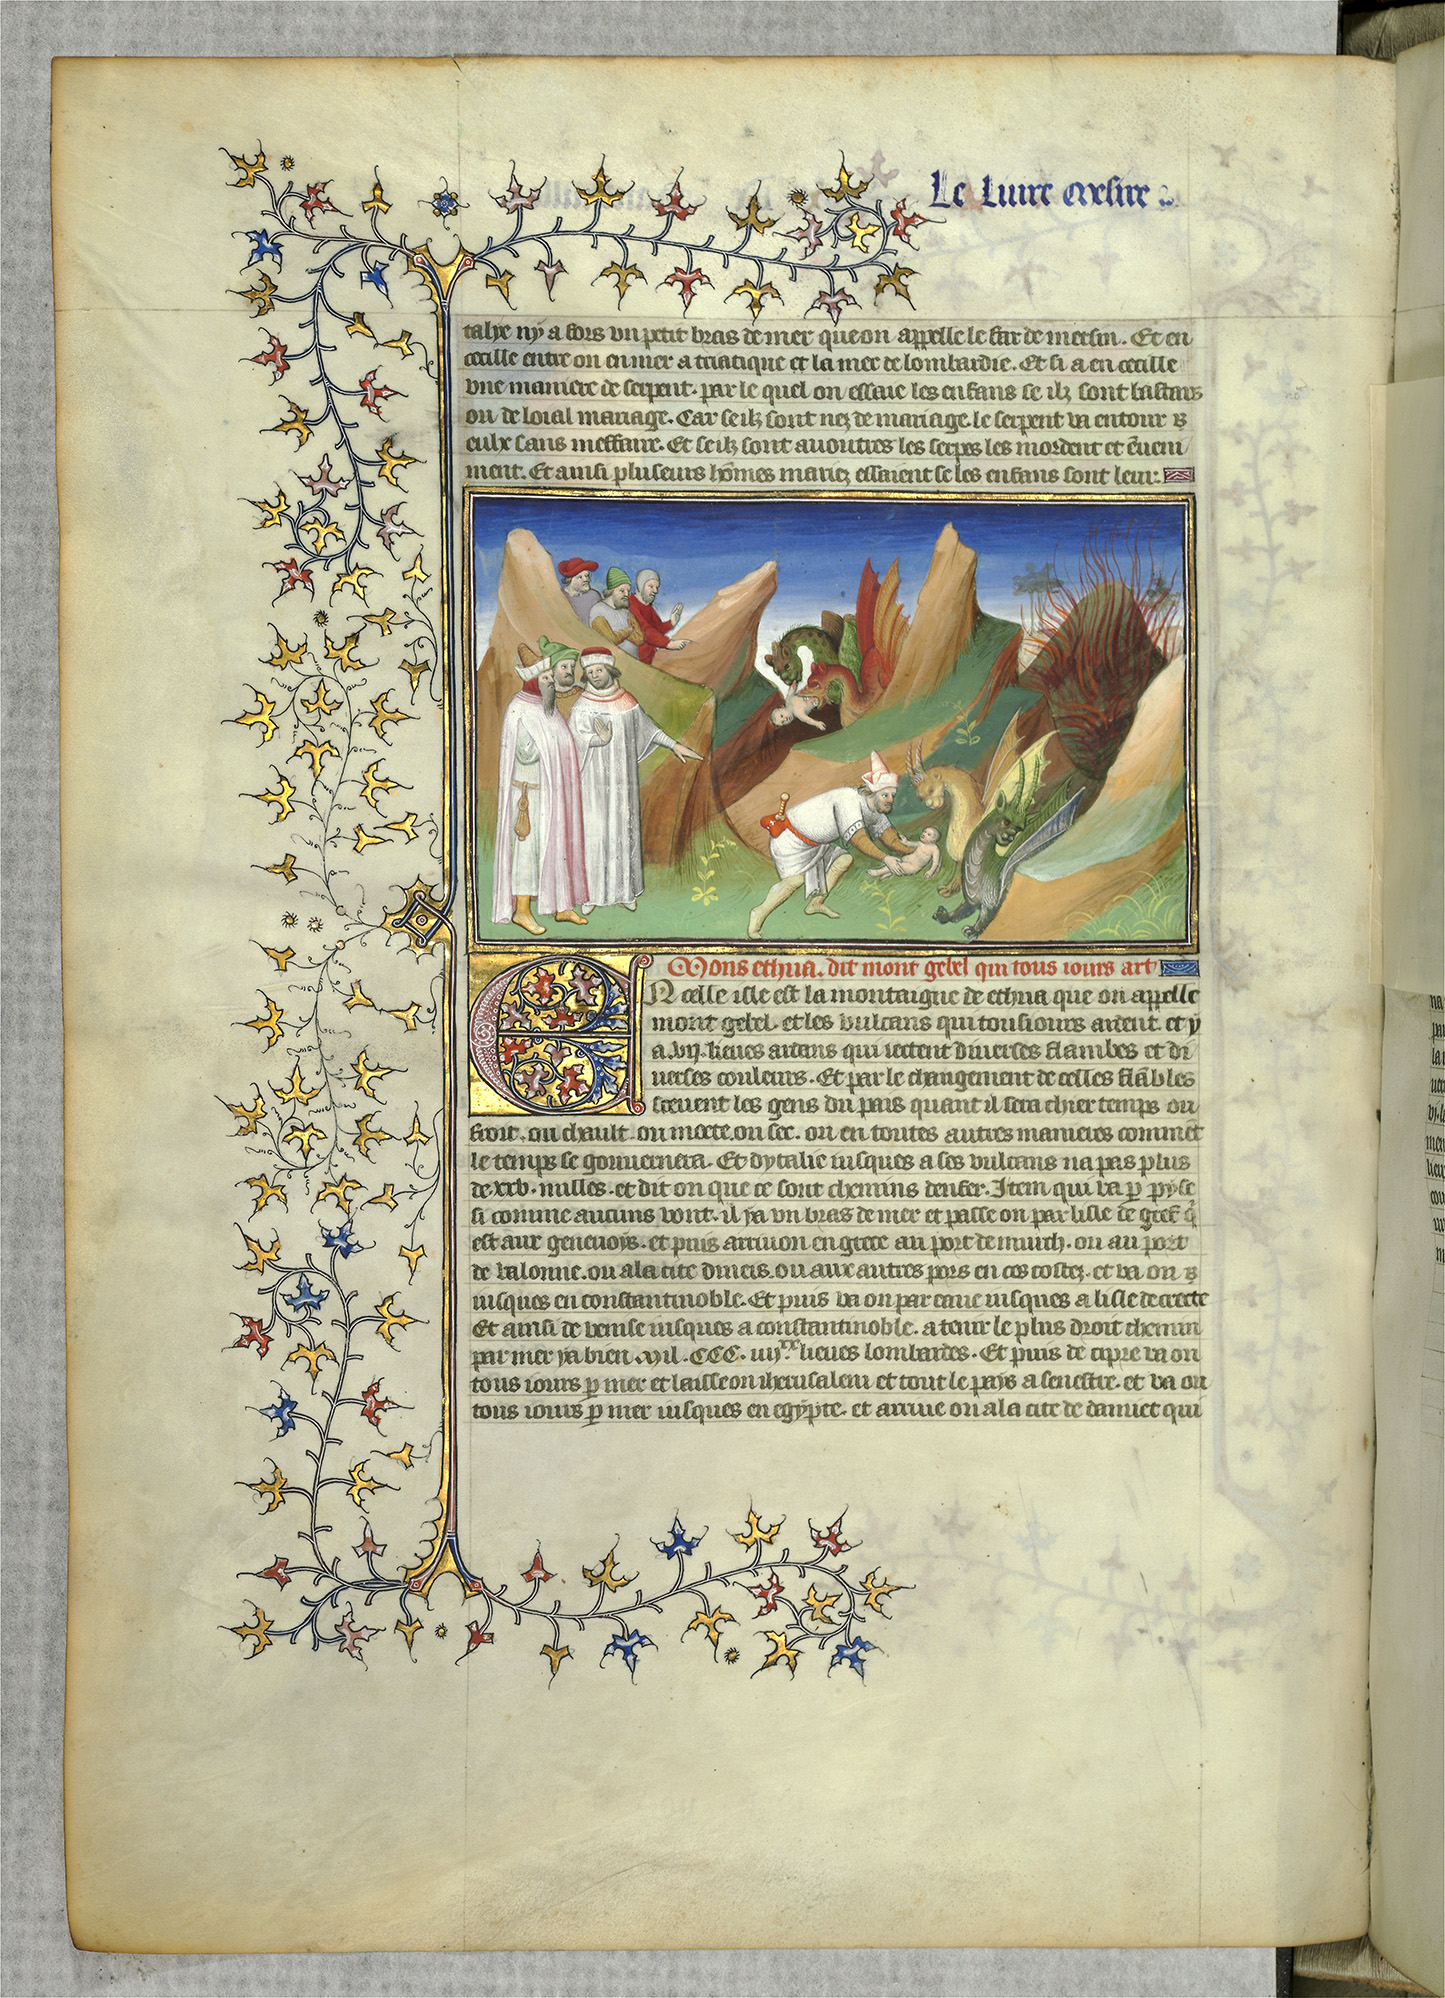 Le Liure messire
talye ny a fors vn petit bras de mer que on appelle le far de meschin. Et en
cecille entre on en mer a triatique et la mer de lombardie. Et si a en cecille
vne maniere de serpent. par le quel on essaie les enfans se ilz sont bastars
ou de loial mariage. Car se ilz sont nez de mariage. le serpent va entour
eulx sans meffaire. Et se ilz sont auoutres les serpens les mordent et eueni
ment. Et ainsi pluseurs hōmes mariez essaient se les enfans sont leur.
Mons ethna. dit mont gebel qui tous iours art
En celle isle est la montaigne de ethna que on appelle
mont gebel. et les vulcans qui tousiours ardent. et y
a .vij. lieues ardans qui iettent diuerses flambes et di
uerses couleurs. Et par le changement de celles flābles
sceuent les gens du pais quant il sera chier temps ou
froit. ou chault. ou moete. ou sec. ou en toutes autres manieres commēt
le temps se gouuernera. Et dytalie iusques a ses vulcans na pas plus
de .xxv. milles. et dit on que ce sont chemins denfer. Item qui va p pyse
si comme aucuns vont. il ya vn bras de mer et passe on par lisle de
est aux geneuoys. et puis arriuon en grece au port de ou au port
de valonne. ou a la cite ou aux autres pors en ces costez. et va on
iusques en constantinoble. Et puis va on par eaue iusques a lisle de crecte
Et ainsi de venise iusques a constantinoble. a tenir le plus droit chemin
par mer ya bien .Mil. CCC. iiijxx. lieues lombardes. Et puis de cipre va on
tous iours p mer et laisse on iherusalem et tout le pays a senestre. et va on
tous iours p mer iusques en egypte. et arriue on a la cite de damiet qui